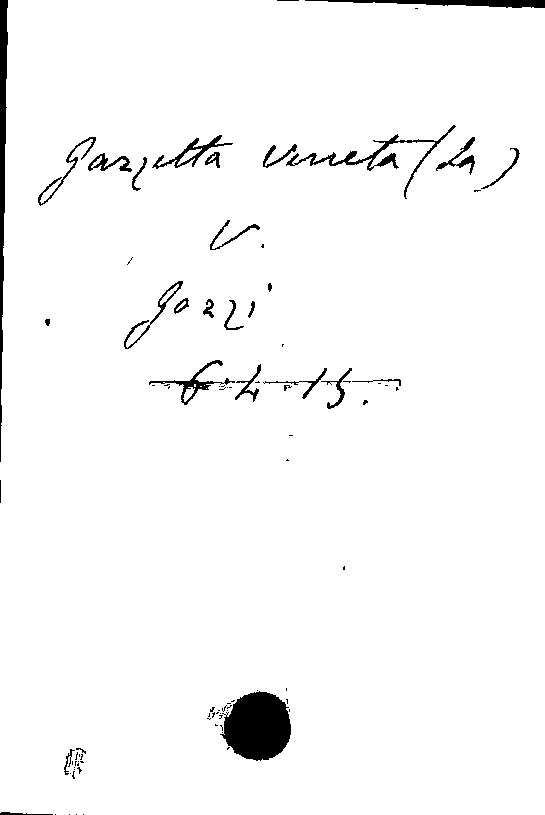 Gazzetta Veneta (La)
V.
Gozzi
6.4.15.